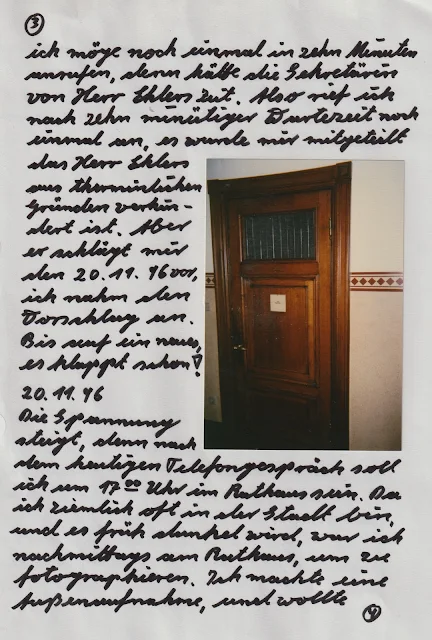 3
ich möge noch einmal in zehn Minuten
anrufen, denn hätte die Sekretärin
von Herr Ehlers zeit. Also rief ich
nach zehn minütiger Wartezeit noch
einmal an, es wurde mir mitgeteilt
das Herr Ehlers
aus therminlichen
Gründen verhin-
dert ist. Aber
er schlägt mir
den 20.11.96 vor,
ich nahm den
Vorschlag an.
Bis auf ein neues,
es klappt schon!
20.11.96
Die Spannung
steigt, denn nach
dem heutigen Telefongespräch soll
ich um 17⁰⁰ Uhr im Rathaus sein. Da
ich ziemlich oft in der Stadt bin,
und es früh dunkel wird, war ich
nachmittags am Rathaus, um zu
fotographieren. Ich machte eine
Außenaufnahme, und wollte
4